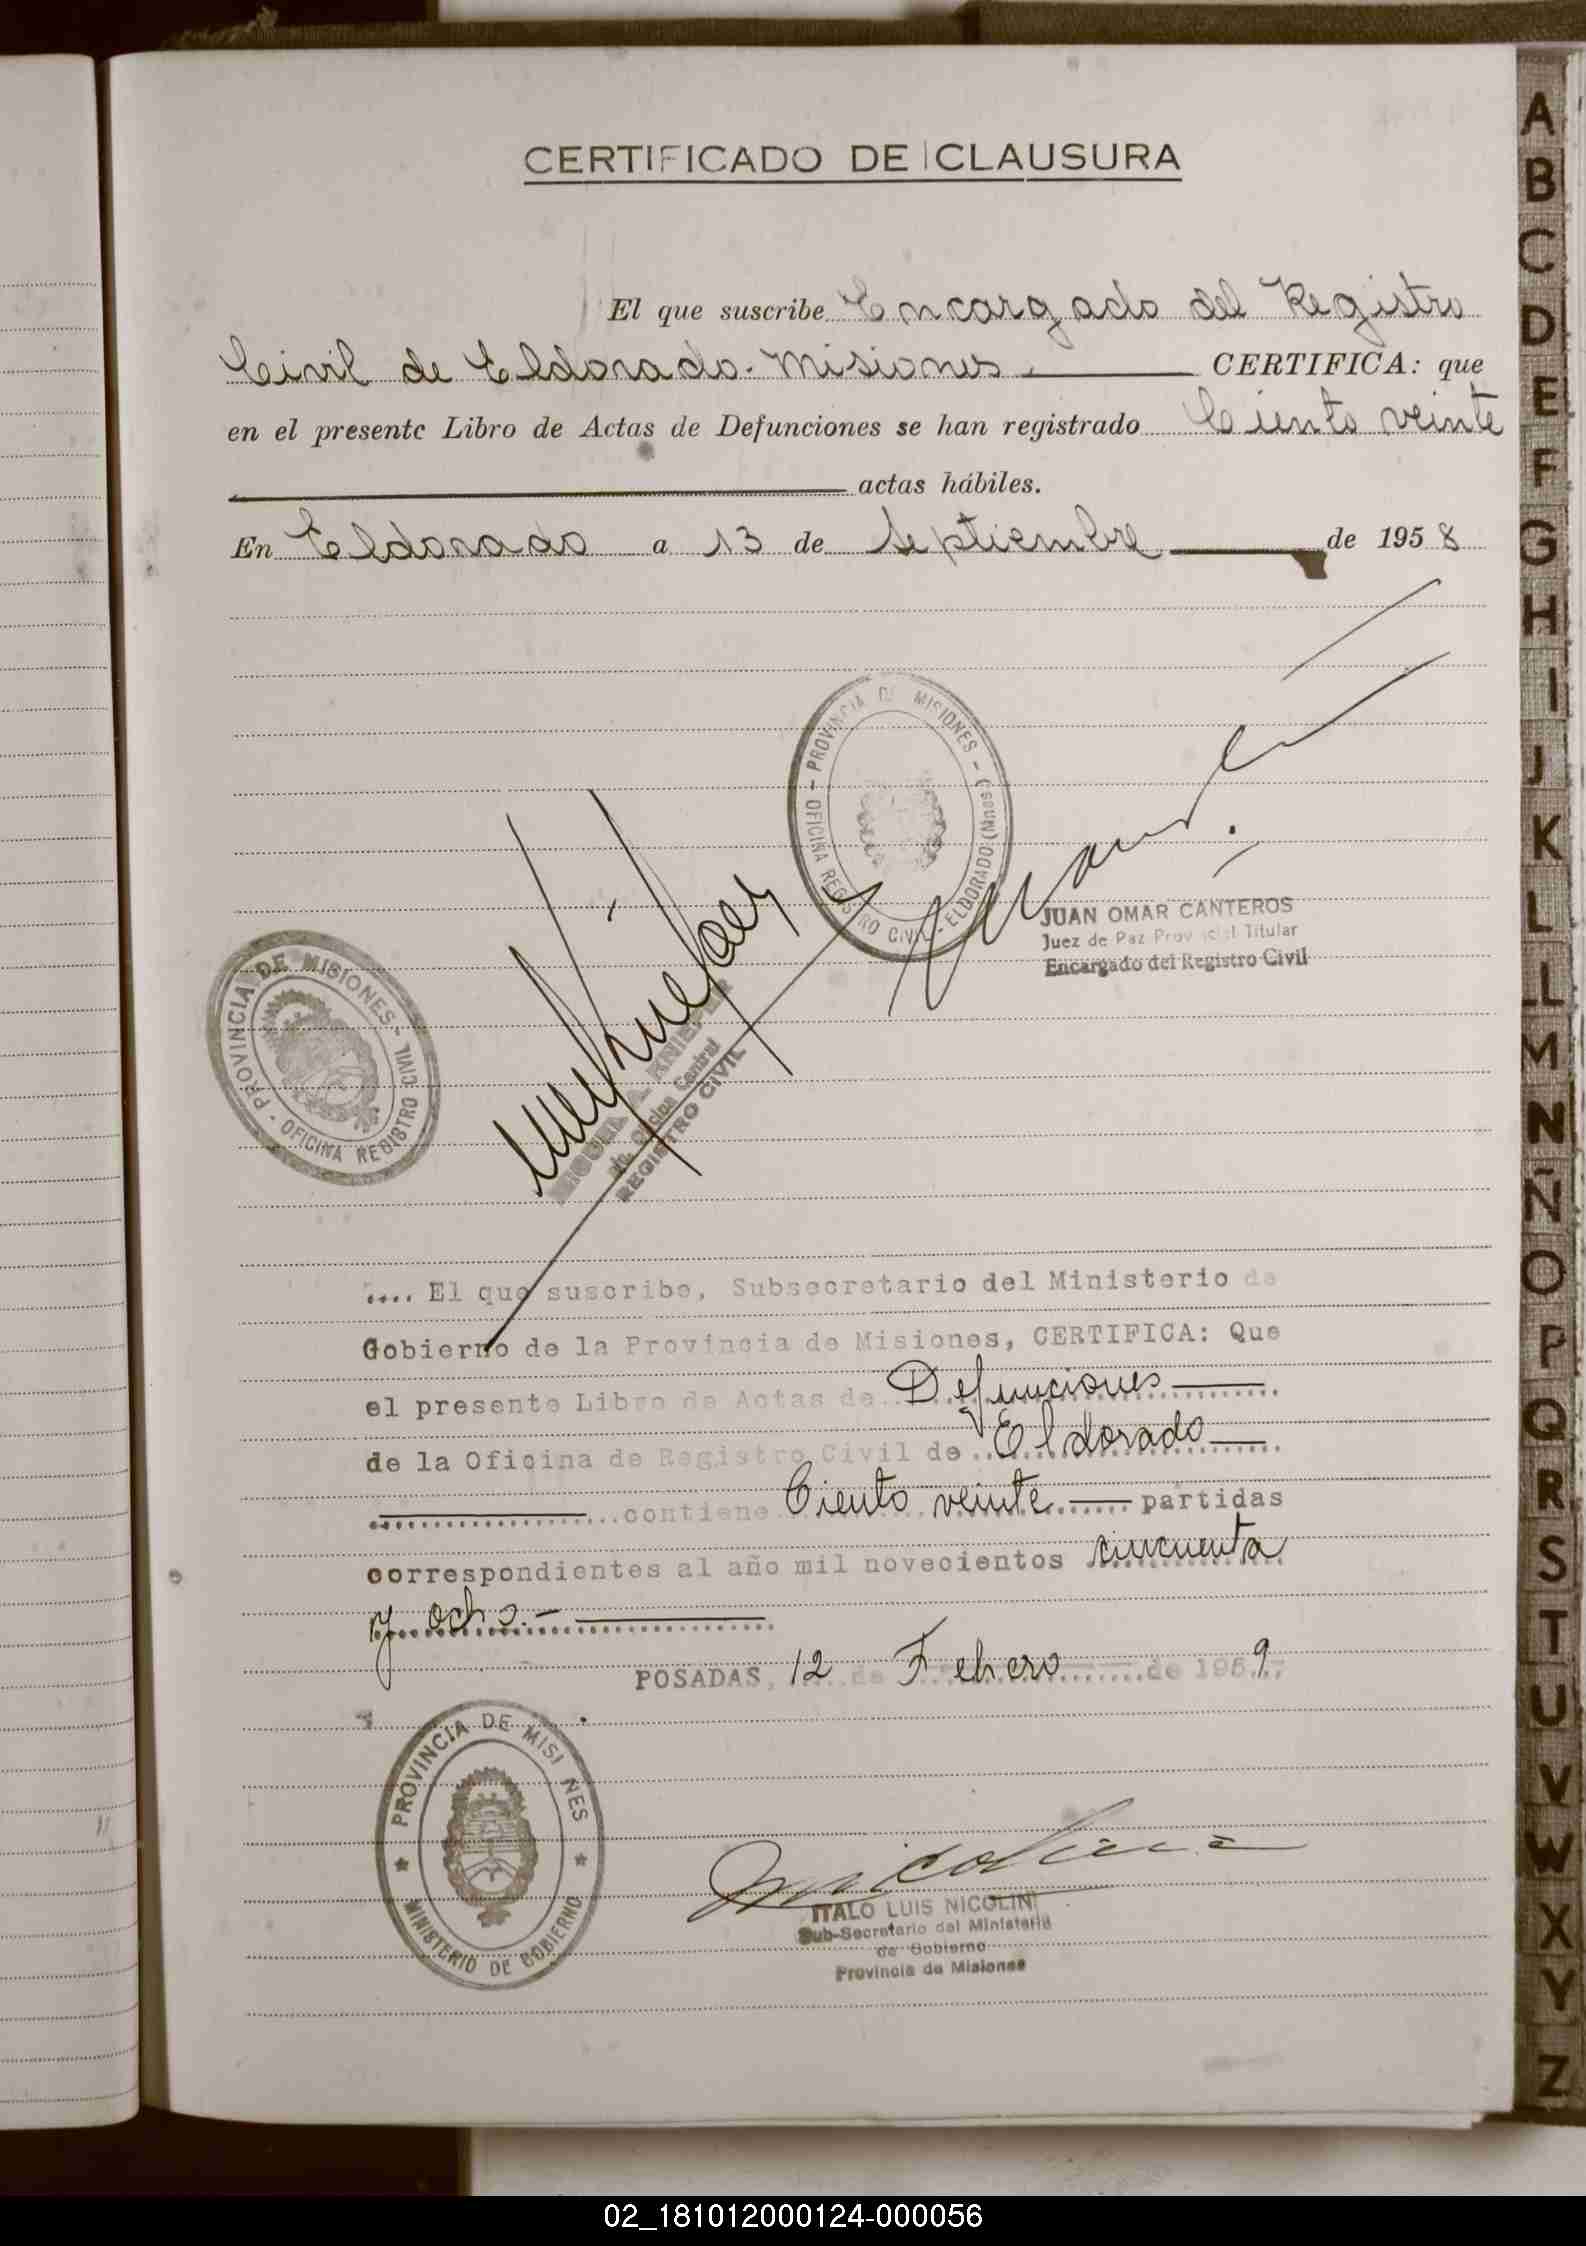 CERTIFICADO DE CLAUSURA
El que suscribe Encargado del Registro
Civil de Eldorado. Misiones. CERTIFICA: que
en el presente Libro de Actas de Defunciones se han registrado Ciento veinte
actas hábiles.
En Eldorado a 13 de Septiembre de 1958
PROVINCIA DE MISIONES - OFICINA REGISTRO CIVIL - ELDORADO (Mnes.)
JUAN OMAR CANTEROS
Juez de Paz Provincial Titular
Encargado del Registro Civil
PROVINCIA DE MISIONES - OFICINA REGISTRO CIVIL
A. KNIEPER
Oficina Central
REGISTRO CIVIL
.... El que suscribe, Subsecretario del Ministerio de
Gobierno de la Provincia de Misiones, CERTIFICA: Que
el presente Libro de Actas de Defunciones
de la Oficina de Registro Civil de Eldorado
contiene Ciento veinte partidas
correspondientes al año mil novecientos cincuenta
y ocho.-
POSADAS, 12 de Febrero de 1959
PROVINCIA DE MISI NES
MINISTERIO DE GOBIERNO
ITALO LUIS NICOLINI
Sub-Secretario del Ministerio
de Gobierno
Provincia de Misiones
A
B
C
D
E
F
G
H
I
J
K
L
LL
M
N
Ñ
O
P
Q
R
S
T
U
V
W
X
Y
Z
02_181012000124-000056